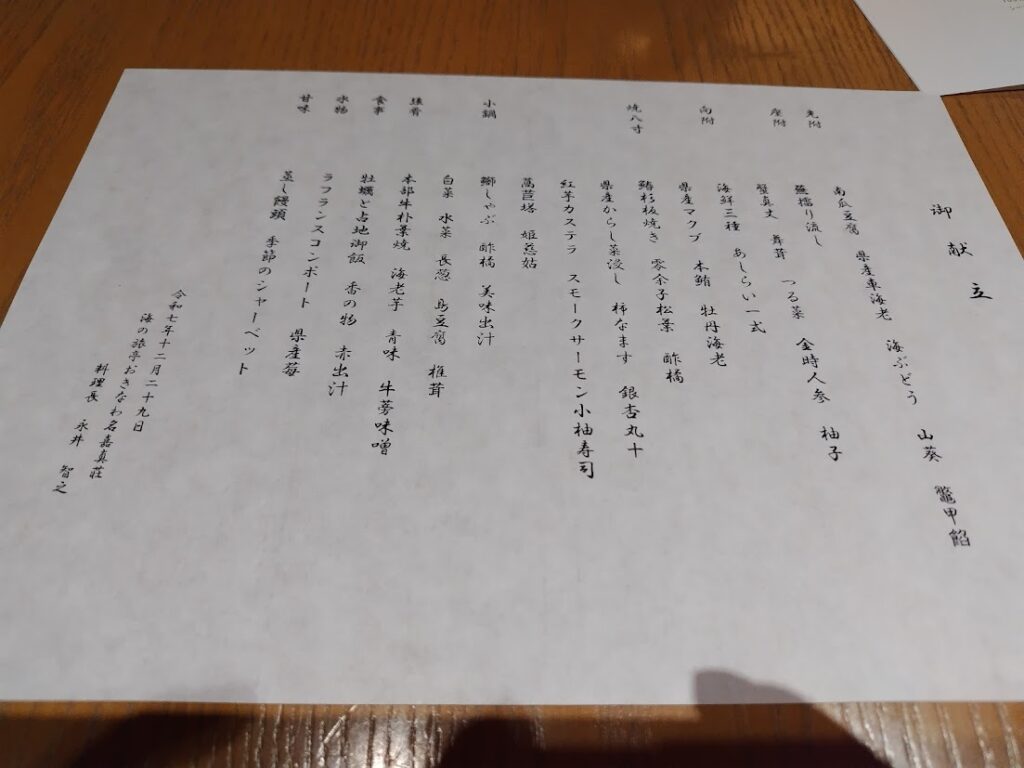 御献立
先附 南瓜豆腐 県産車海老 海ぶどう 山葵 鼈甲餡
座附 蕪擂り流し
蟹真丈 舞茸 つる菜 金時人参 柚子
向附 海鮮三種 あしらい一式
県産マクブ 本鮪 牡丹海老
焼八寸 鰆杉板焼き 零余子松葉 酢橘
県産からし菜浸し 柿なます 銀杏丸十
紅芋カステラ スモークサーモン小柚寿司
萵苣塔 姫慈姑
小鍋 鰤しゃぶ 酢橘 美味出汁
白菜 水菜 長葱 島豆腐 椎茸
強肴 本部牛朴葉焼 海老芋 青味 牛蒡味噌
食事 牡蠣と占地御飯 香の物 赤出汁
水物 ラフランスコンポート 県産苺
甘味 蒸し饅頭 季節のシャーベット
令和七年十二月二十九日
海の旅亭おきなわ名嘉真荘
料理長 永井 智之